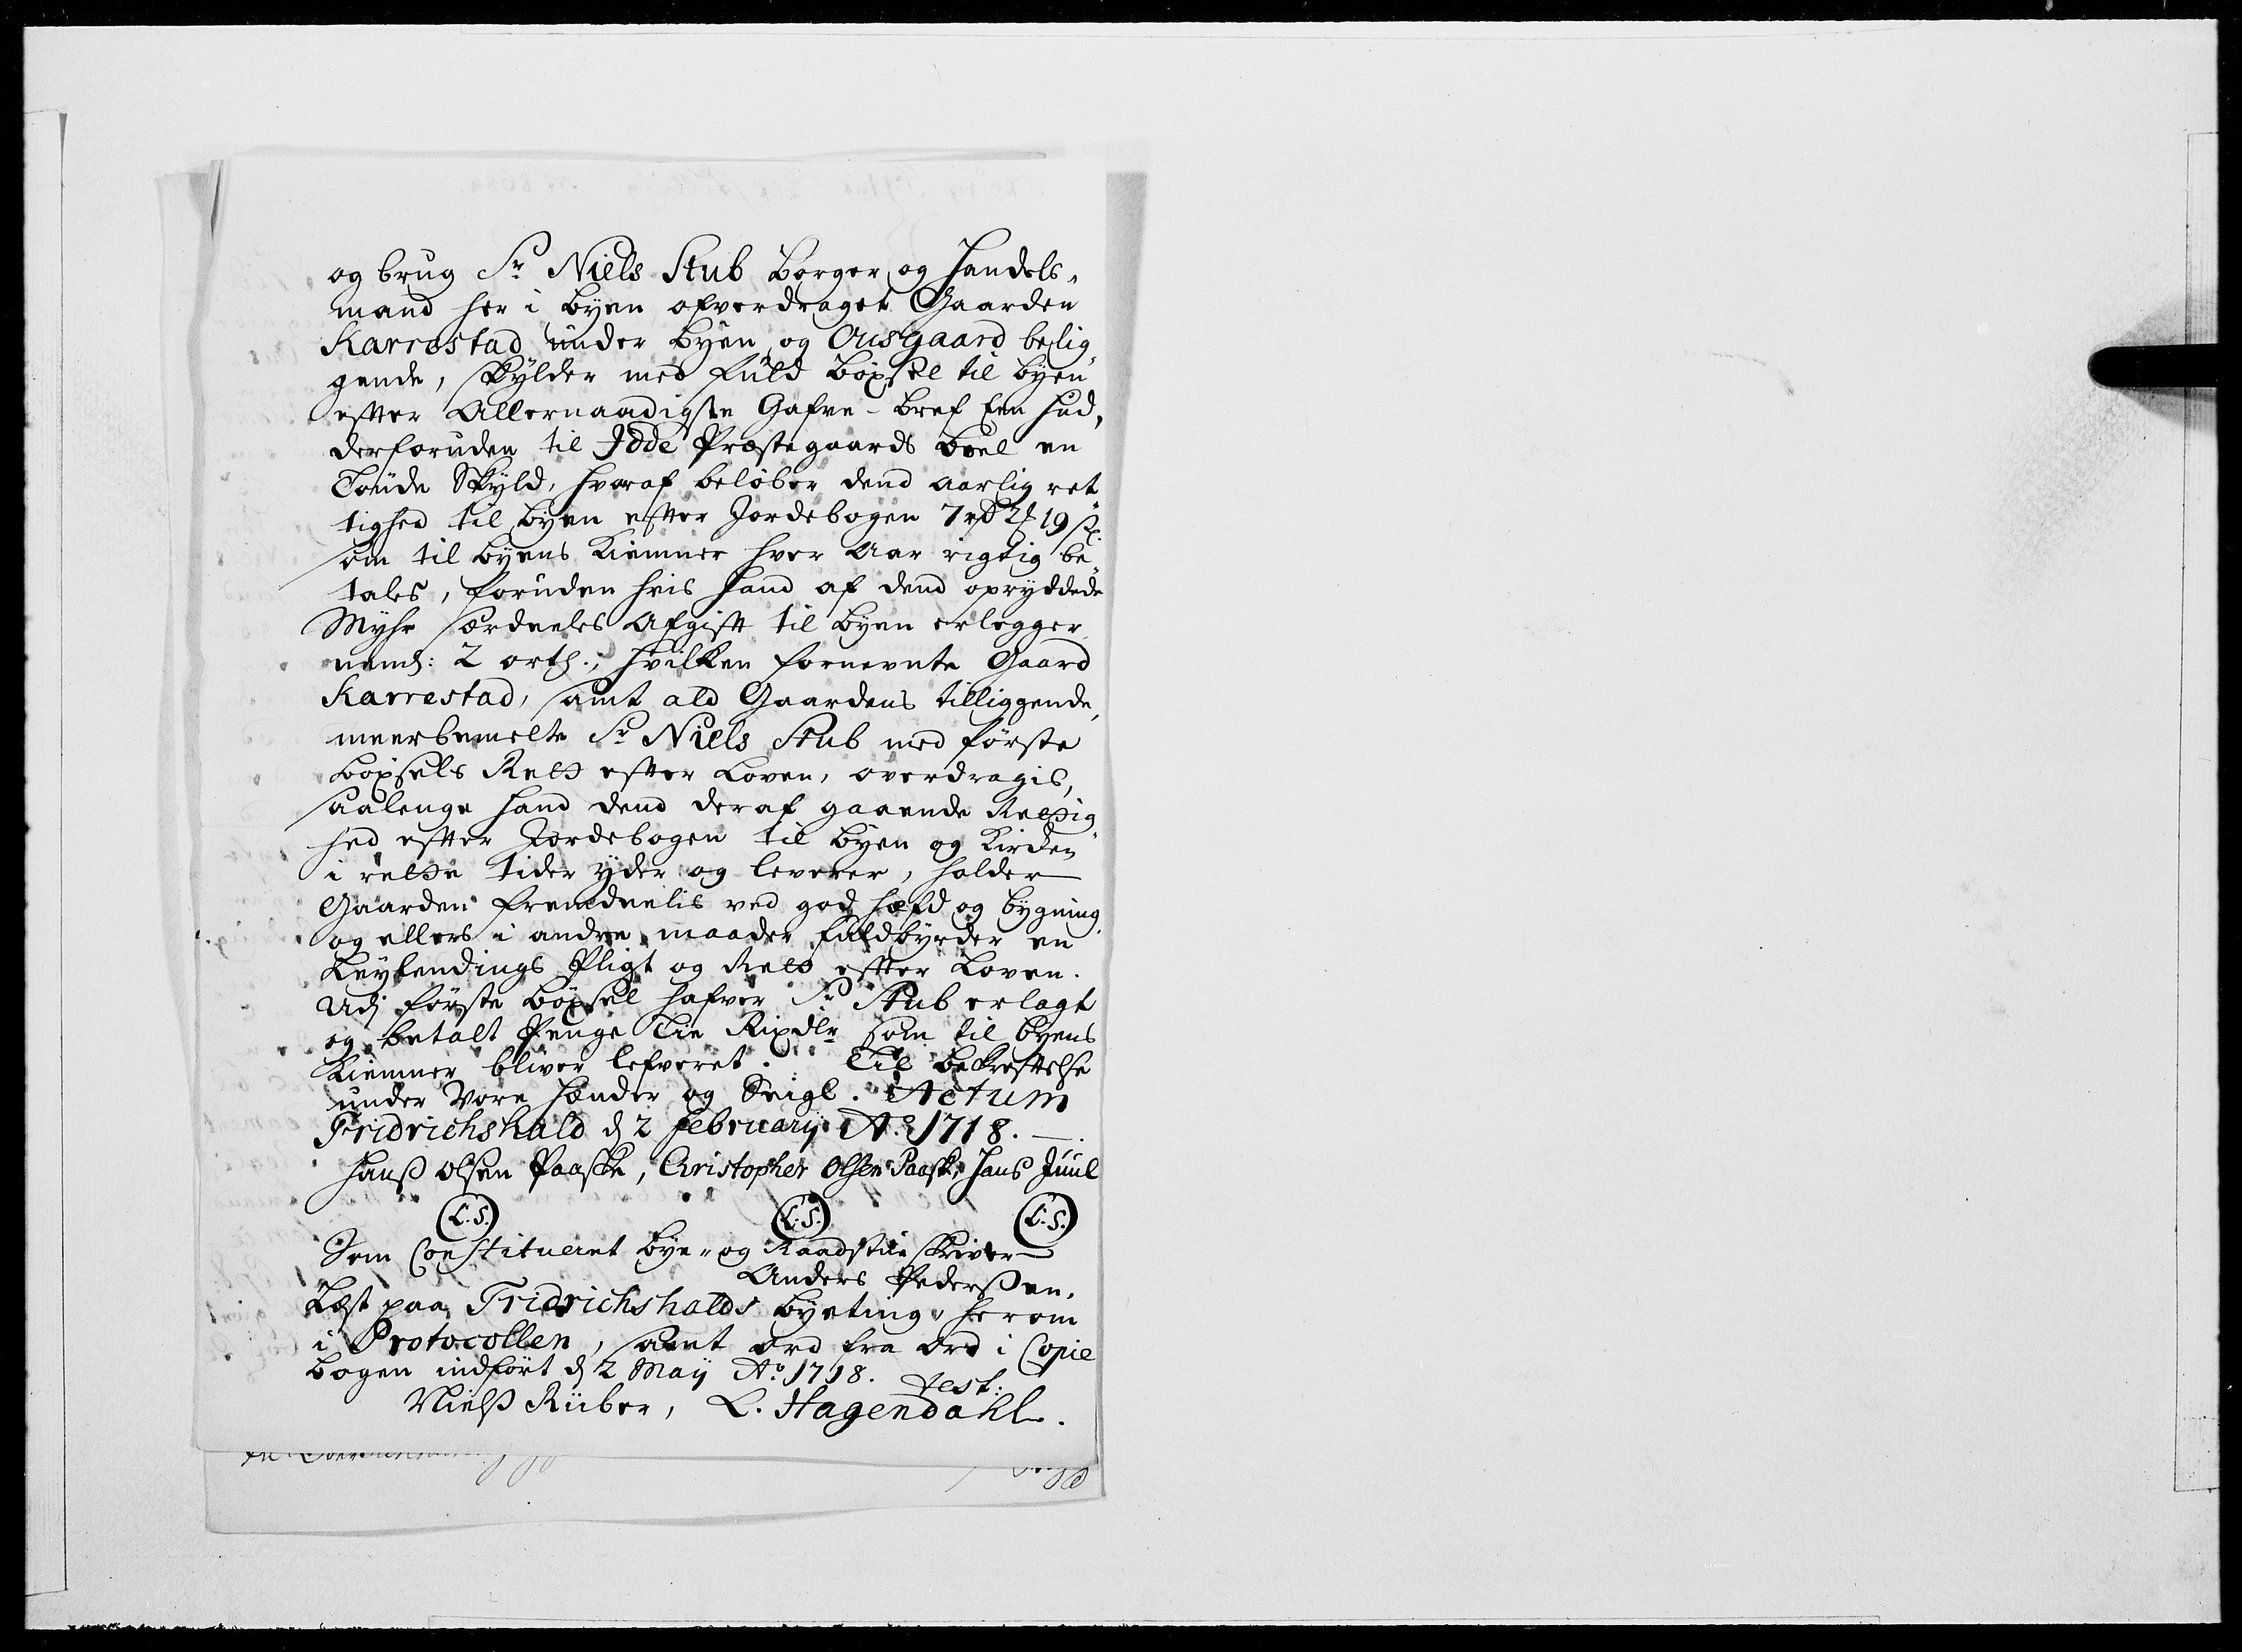 og brug Sr Niels Stub Borger og Handels-
mand her i byen ofverdraget Gaarden
Karrestad under byen og Ousgaard belig-
gende, skylder med fuld böxsel til byen
effter Allernaadigste Gafve-bref Een Hud,
derforuden til Idde Præstegaards boel en
Tönde Skyld, hvoraf belöber dend aarlig ret
tighed til byen effter Jordebogen 7 rd 2 ℔ 19 s
som til byens Kiemner hver Aar rigtig be-
tales, foruden hvis hand af dend opryddede
Myhr særdeeles Afgifft til byen erlegger
neml: 2 orth.; hvilken fornevnte Gaard
Karrestad, samt ald Gaardens tilliggende,
meerbemelte Sr Niels Stub med förste
böxsels Rett effter Loven, overdragis,
saalenge hand dend deraf gaaende Rettig-
hed effter Jordebogen til byen og Kirken
i rette tider yder og leverer, holder
Gaarden fremdeelis ved god hæfd og bygning
og ellers i andre maader fuldbyrder en
Leylendings Pligt og Rett effter Loven.
Udj förste böxsel hafver Sr Stub erlagt
og betalt Penge Tie Rixdlr som til byens
Kiemner bliver lefveret. Til bekræfftelse
under Vore hænder og Seigl. Actum
Fridrichshald d 2 february Ao 1718.
Hanss Olsen Paaske, Christopher Olsen Paask, Hans Juul
(L.S.) (L.S.) (L.S.)
Som Constitueret bye- og Raadstueskriver
Anders Pederssen.
Læst paa Fridrichshalds byeting, herom
i Protocollen, samt ord fra ord i Copie
bogen indfört d 2 Maij Ao 1718. test:
Nielss Riiber, L. Hagendahl.